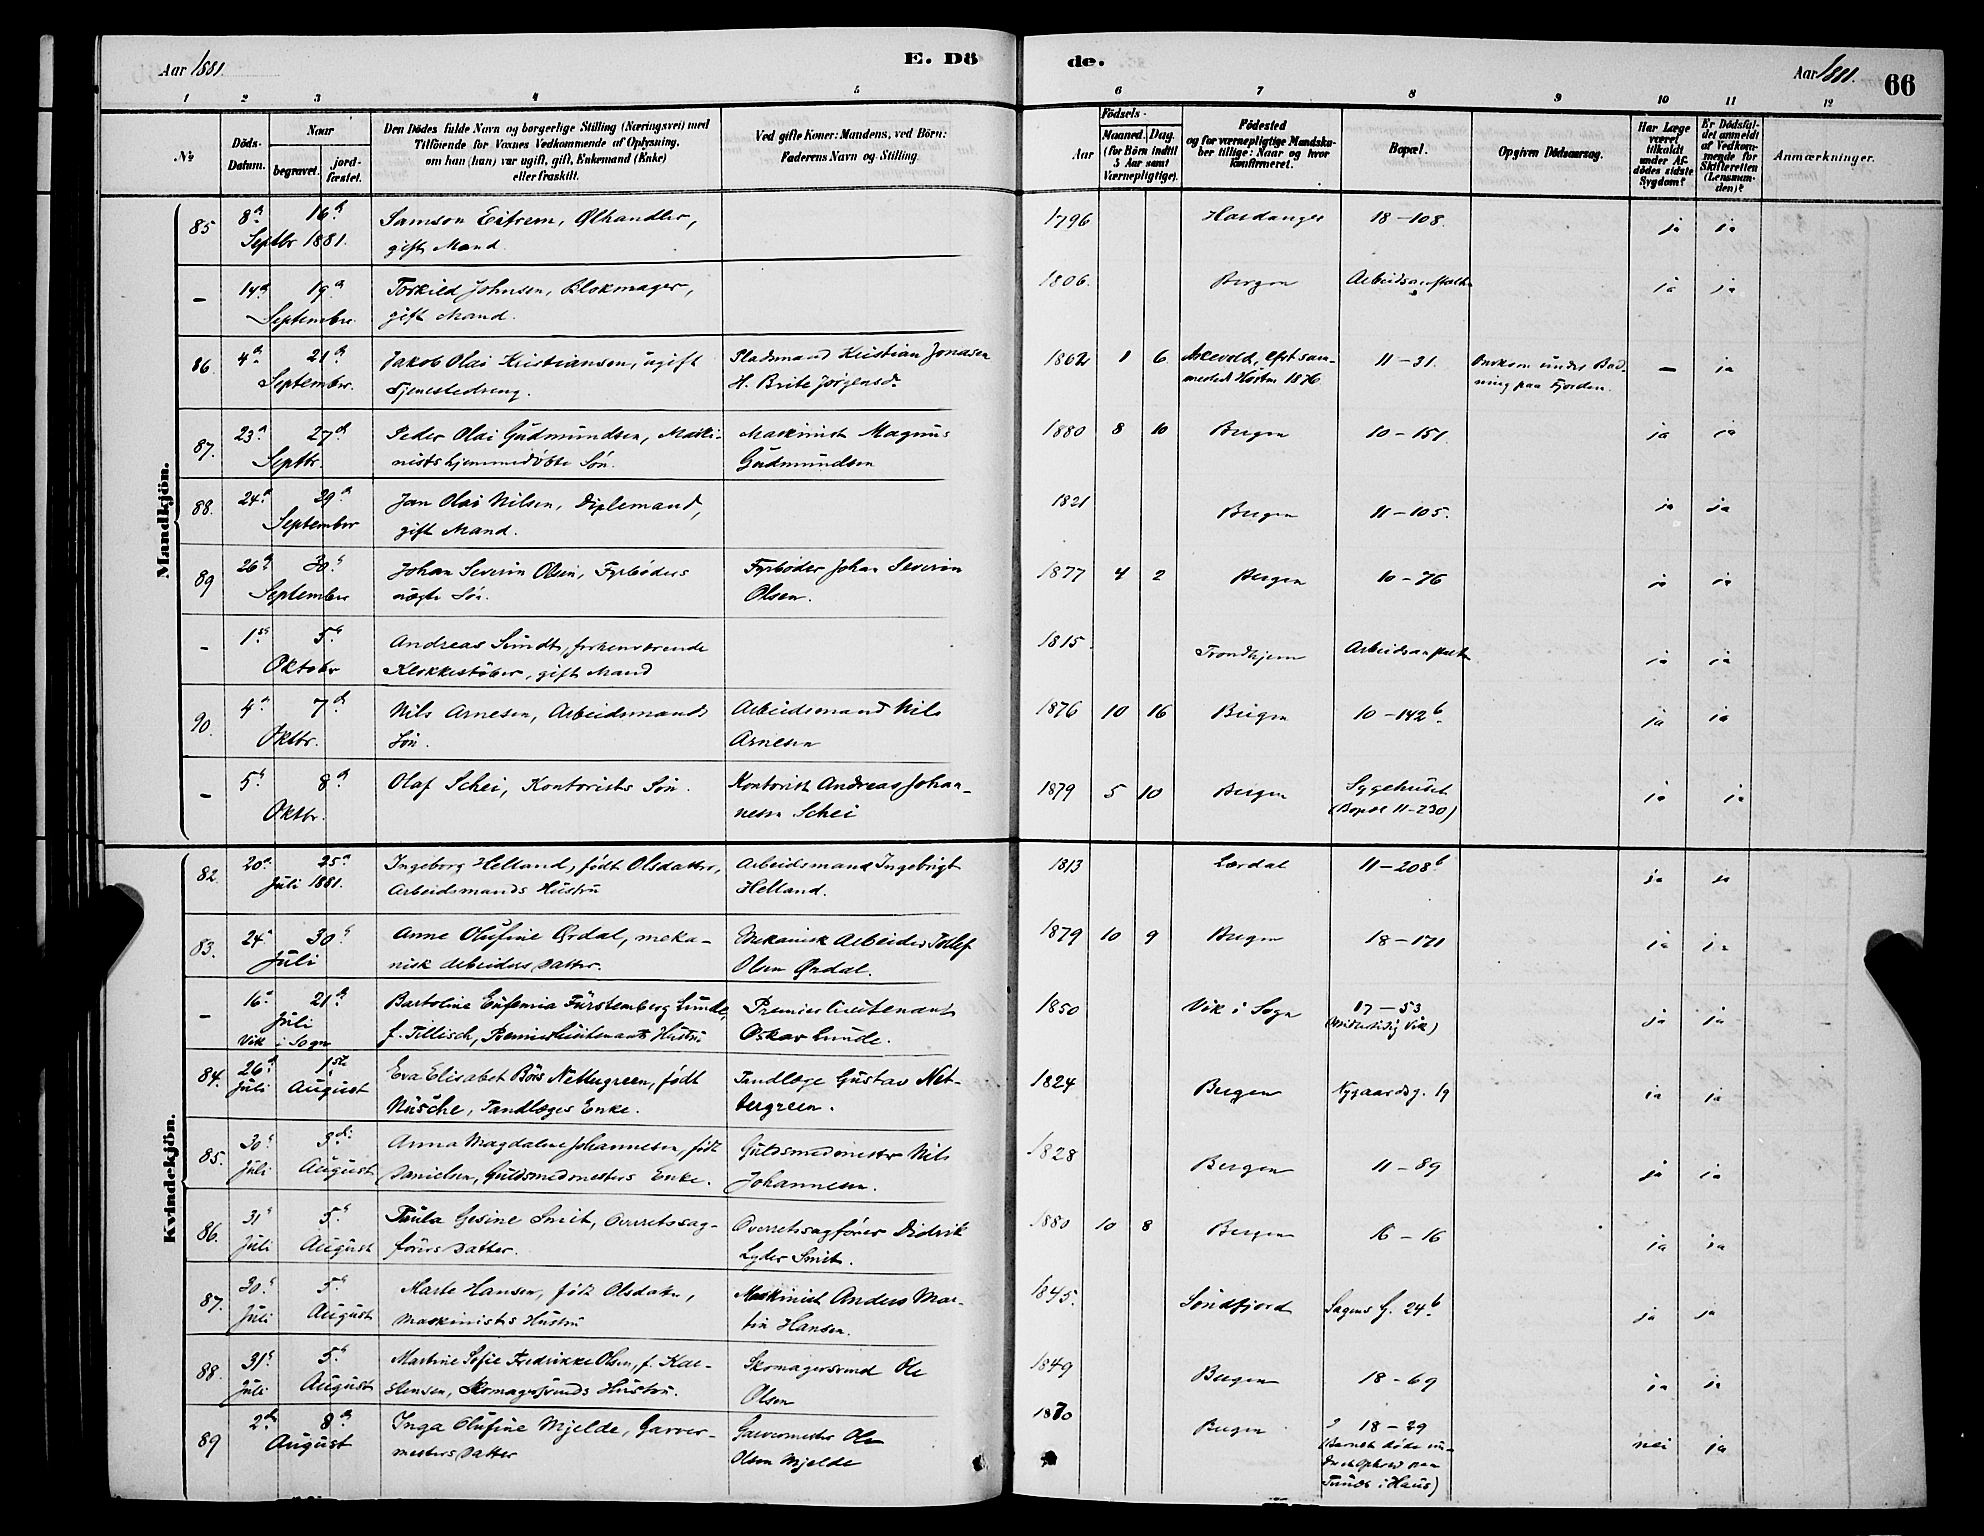 Aar 1881.
E. Dö
de.
Aar 1881.
66
1 2 3 4 5 6 7 8 9 10 11 12
No.
Döds-
Datum.
Naar
begravet.
jord-
fæstet.
Den Dödes fulde Navn og borgerlige Stilling (Næringsvei) med
Tilföiende for Voxnes Vedkommende af Oplysning,
om han (hun) var ugift, gift, Enkemand (Enke)
eller fraskilt.
Ved gifte Koner: Mandens, ved Börn:
Faderens Navn og Stilling.
Födsels-
Aar
Maaned. Dag.
(for Börn indtil
5 Aar samt
Værnepligtige).
Födested
og for værnepligtige Mandska-
ber tillige: Naar og hvor
konfirmeret.
Bopæl.
Opgiven Dödsaarsag.
Har Læge
været
tilkaldt
under Af-
dödes sidste
Sygdom?
Er Dödsfal-
det anmeldt
af Vedkom-
mende for
Skifteretten
(Lensman-
den)?
Anmærkninger.
Mandkjön.
85 8de 16de Samson Eitrem, Ølhandler, 1796 Hardanger 18-108. ja ja
Septbr 1881. gift Mand.
- 14de 19de Torkild Johnsen, Blokmager, 1806. Bergen Arbeidsanstalten ja ja
Septembr. gift Mand.
86. 4de 21de Jakob Olai Kristiansen, ugift Pladsmand Kristian Jonasen 1862 1 6 Askevold, efst sam- 11-31. Omkom under Bad- - ja
Septembr. Tjenestedreng. H. Brite Jørgensd. mested Høsten 1876 ning paa Fjorden.
87. 23de 27de Peder Olai Gudmundsen, Maski- Maskinist Magnus 1880 8 10 Bergen 10-151. ja ja
Septbr. nists hjemmedøbte Søn. Gudmundsen
88. 24de 29de Jan Olai Nilsen, Diplemand, 1821 Bergen 11-105. ja ja
September gift Mand.
89 26de 30te Johan Severin Olsen, Fyrbøders Fyrbøder Johan Severin 1877 4 2 Bergen 10-76 ja ja
Septembr ægte Søn. Olsen.
- 1ste 5te Andreas Sundt, forhenværende 1815 Trondhjem Arbeidsanstalten ja ja
Oktobr Klokkestøber, gift Mand
90. 4de 7de Nils Arnesen, Arbeidsmands Arbeidsmand Nils 1876 10 16 Bergen 10-142b. ja ja
Oktbr. Søn. Arnesen
- 5te 8de Olaf Schei, Kontorists Søn. Kontorist Andreas Johan- 1879 5 10 Bergen Sygehuset ja ja
Oktbr. nesen Schei (Bopæl 11-230)
Kvindekjön.
82. 20de 25de Ingeborg Helland, født Olsdatter, Arbeidsmand Ingebrigt 1813 Lærdal 11-208b ja ja
Juli 1881. Arbeidsmands Hustru Helland.
83. 24de 30te Anne Olufine Ørdal, meka- Mekanisk Arbeider Tollef 1879 10 9 Bergen 18-171 ja ja
Juli nisk Arbeiders Datter. Olsen Ørdal.
- 16de 21de Bartoline Eufemia Fürstemberg Lunde, Premierlieutenant 1850 Vik i Sogn 17-53 ja ja
Juli f. Tillisch, Premierlieutenants Hustru Oskar Lunde. (midlertidig Vik)
Vik i Sogn
84. 26de 1ste Eva Elisabet Børs Nettergreen, født Tandlæge Gustav Net- 1824 Bergen Nygaardsg. 19 ja ja
Juli August Nüsche, Tandlæges Enke. tergreen.
85. 30te 3de Anna Magdalene Johannesen, født Guldsmedmester Nils 1828 Bergen 11-89 ja ja
Juli August Danielsen, Guldsmedmesters Enke. Johannesen.
86. 31te 5te Thula Gesine Smit, Overretssag- Overretssagfører Didrik 1880 10 8 Bergen 16-16 ja ja
Juli August førers Datter. Lyder Smit.
87. 30te 5te Marte Hansen, født Olsdatter, Maskinist Anders Mar- 1845. Søndfjord Sagens G. 24b. ja ja
Juli August Maskinists Hustru tin Hansen.
88. 31te 5te Martine Sofie Fredrikke Olsen, f. Kar- Skomagersvend Ole 1849 Bergen 18-69 ja ja
Juli August stensen, Skomagersvends Hustru. Olsen
89 2den 8de Inga Olufine Mjelde, Garver- Garvermester Ole 1870 Bergen 18-29 nei ja
August mesters Datter Olsen Mjelde (Barnet døde un-
der et Ophold paa
Tunes i Haus)